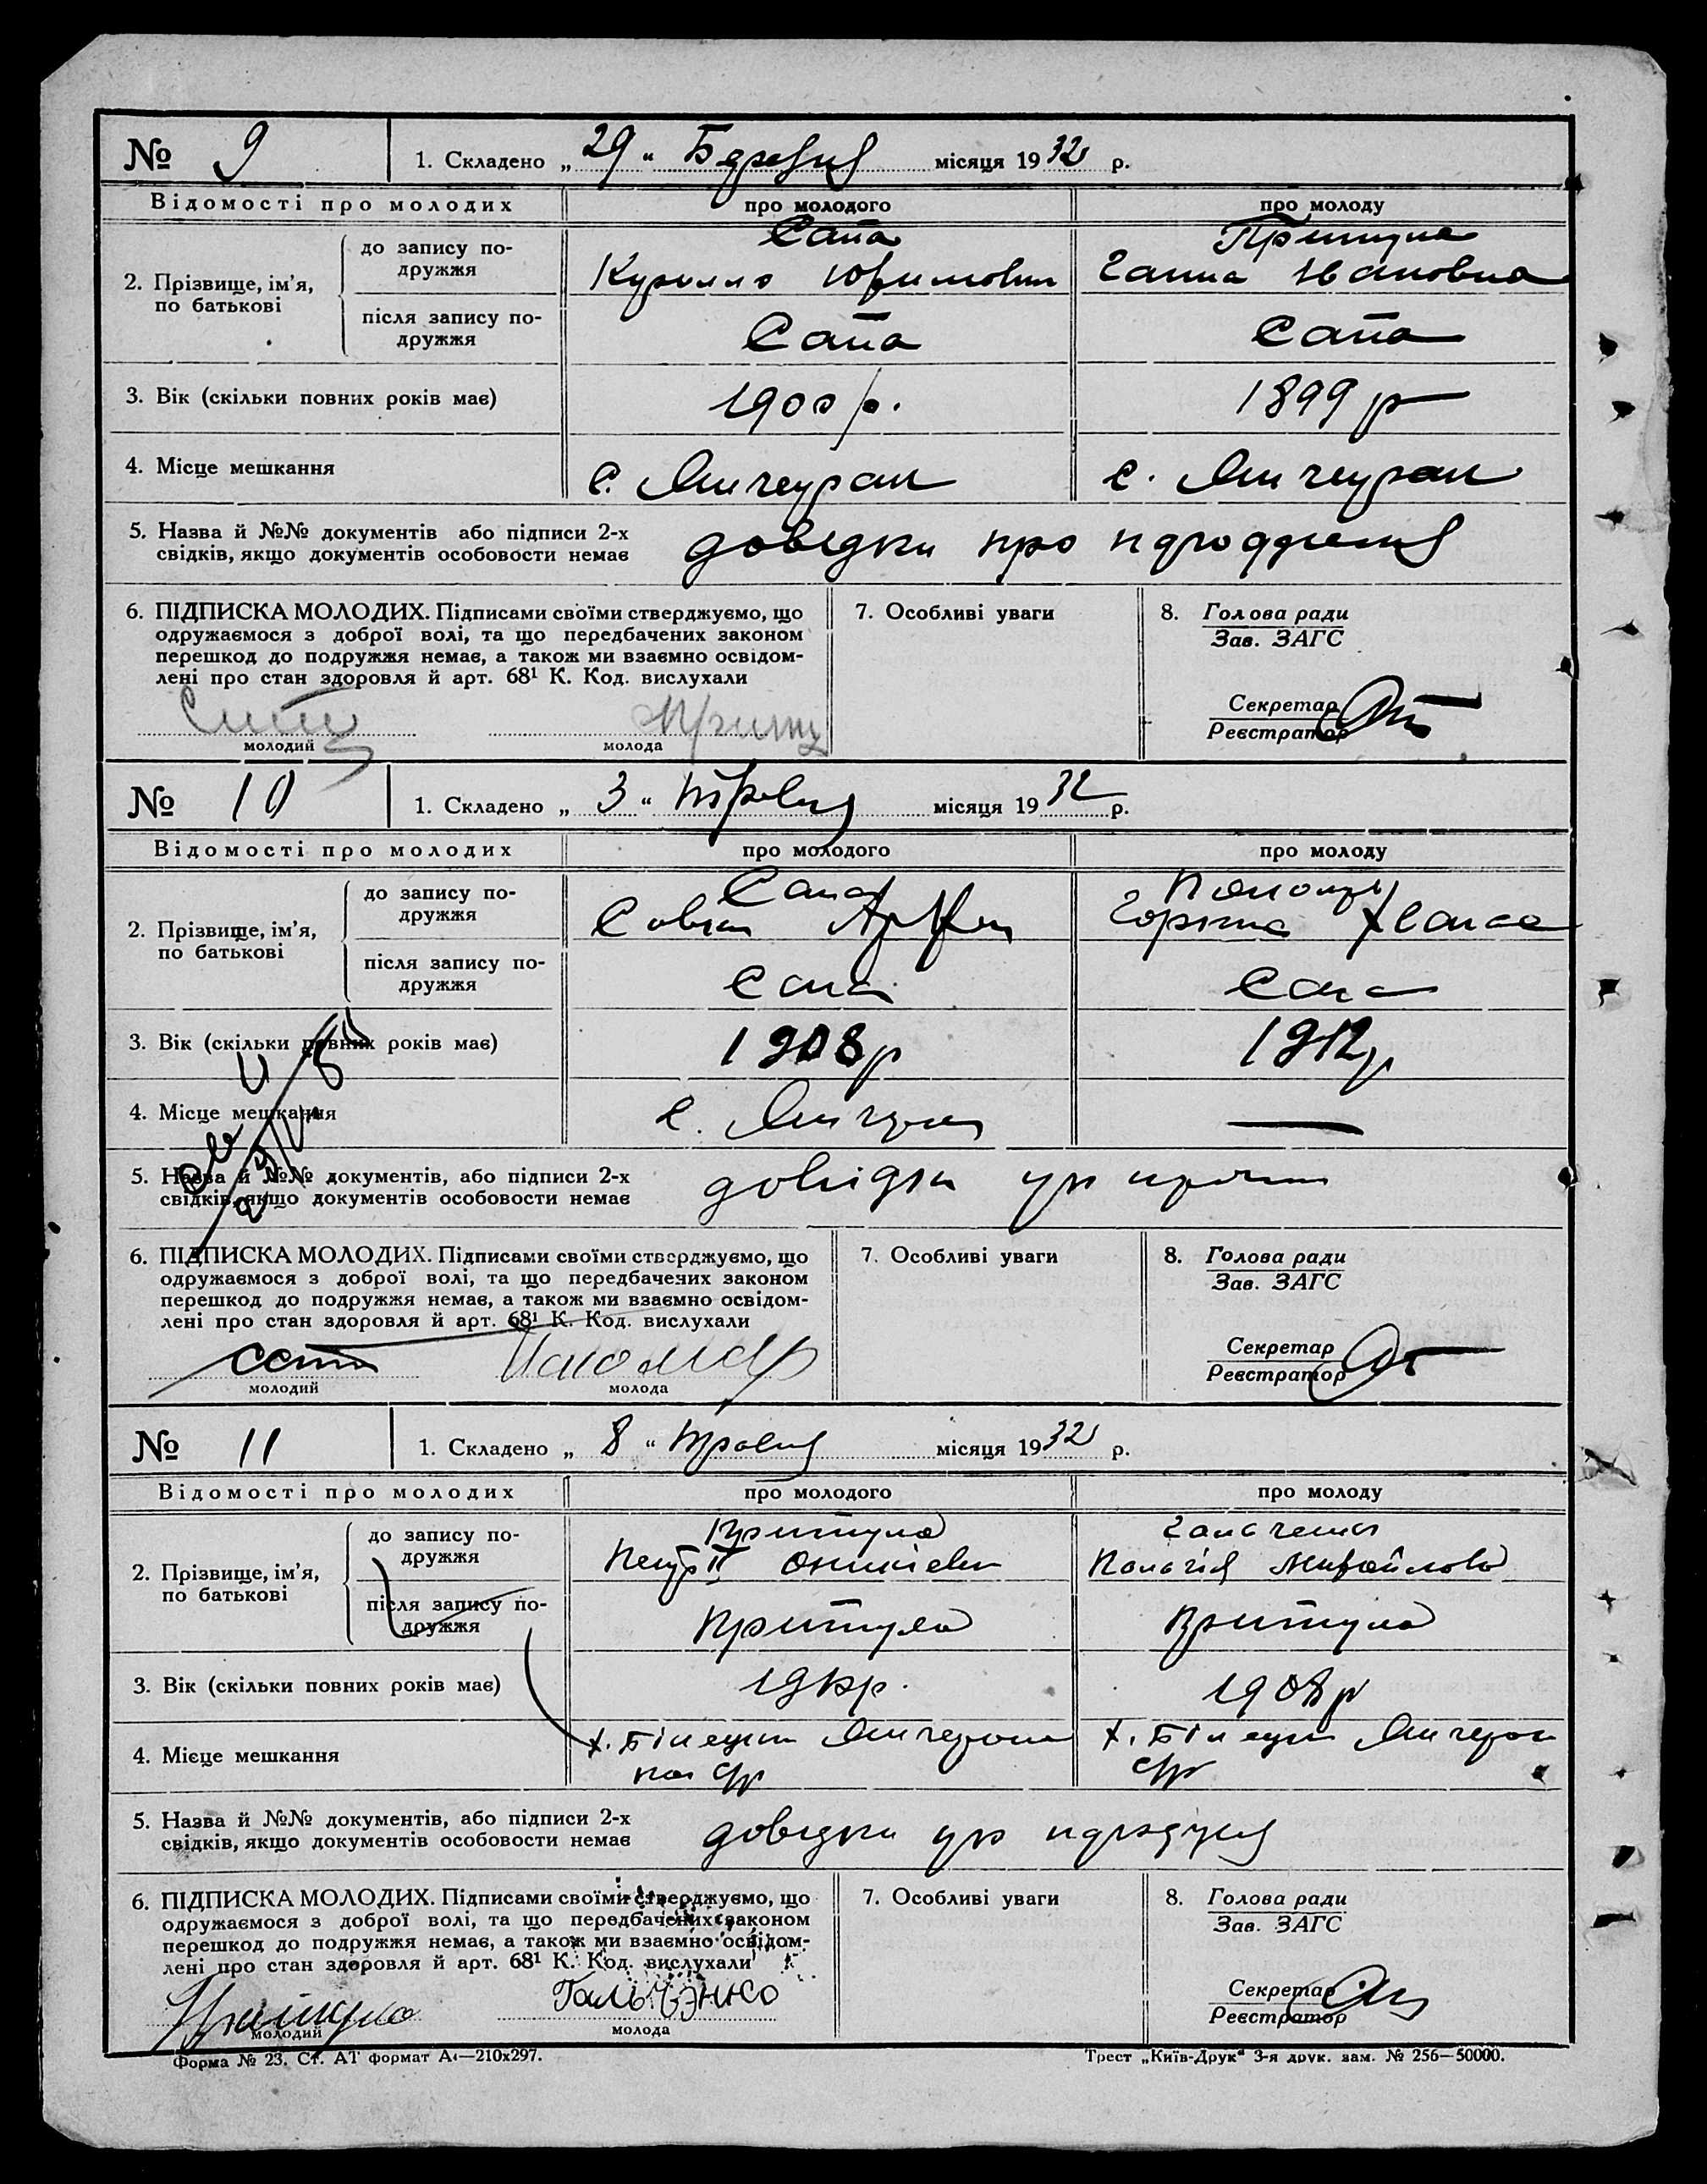 № 9
1. Складено „ 29 “ Березня місяця 19 32 р.
Відомості про молодих
про молодого
про молоду
2. Прізвище, ім’я, по батькові
до запису подружжя
Сапа
Кирилло Юхимович
Притула
Ганна Ивановна
після запису подружжя
Сапа
Сапа
3. Вік (скільки повних років має)
1900 р.
1899 р
4. Місце мешкання
с.
с.
5. Назва й №№ документів або підписи 2-х
свідків, якщо документів особовости немає
довідки про
6. ПІДПИСКА МОЛОДИХ. Підписами своїми стверджуємо, що
одружаємося з доброї волі, та що передбачених законом
перешкод до подружжя немає, а також ми взаємно освідом-
лені про стан здоровля й арт. 68¹ К. Код. вислухали
молодий
молода
7. Особливі уваги
8. Голова ради
Зав. ЗАГС
Секретар
Реєстратор
№ 10
1. Складено „ 3 “ травня місяця 19 32 р.
Відомості про молодих
про молодого
про молоду
2. Прізвище, ім’я, по батькові
до запису подружжя
Сапа
після запису подружжя
Сапа
Сапа
3. Вік (скільки повних років має)
1908 р
1912 р
4. Місце мешкання
с.
5. Назва й №№ документів, або підписи 2-х
свідків, якщо документів особовости немає
довідки
6. ПІДПИСКА МОЛОДИХ. Підписами своїми стверджуємо, що
одружаємося з доброї волі, та що передбачених законом
перешкод до подружжя немає, а також ми взаємно освідом-
лені про стан здоровля й арт. 68¹ К. Код. вислухали
молодий
молода
7. Особливі уваги
8. Голова ради
Зав. ЗАГС
Секретар
Реєстратор
№ 11
1. Складено „ 8 “ травня місяця 19 32 р.
Відомості про молодих
про молодого
про молоду
2. Прізвище, ім’я, по батькові
до запису подружжя
Притула
після запису подружжя
Притула
Притула
3. Вік (скільки повних років має)
1908 р
4. Місце мешкання
х.
х.
5. Назва й №№ документів, або підписи 2-х
свідків, якщо документів особовости немає
довідки
6. ПІДПИСКА МОЛОДИХ. Підписами своїми стверджуємо, що
одружаємося з доброї волі, та що передбачених законом
перешкод до подружжя немає, а також ми взаємно освідом-
лені про стан здоровля й арт. 68¹ К. Код. вислухали
Притула
молодий
Гальченко
молода
7. Особливі уваги
8. Голова ради
Зав. ЗАГС
Секретар
Реєстратор
Форма № 23. Ст. АТ формат А₄—210х297.
Трест „Київ-Друк“ 3-я друк. зам. № 256—50000.